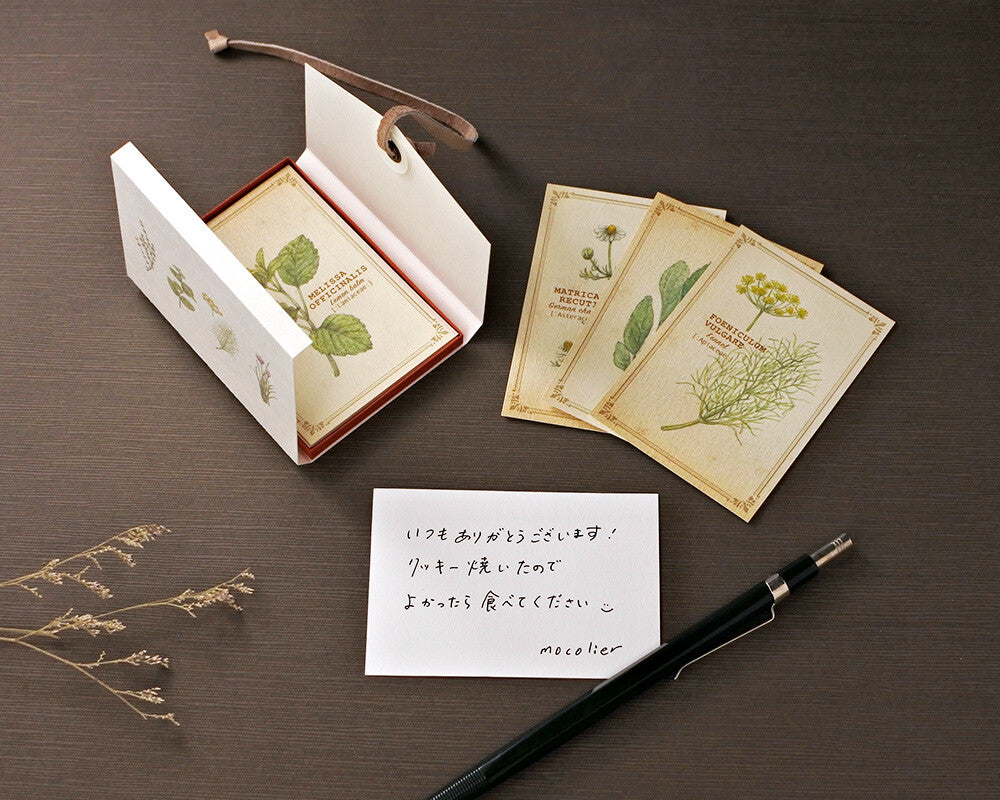 MELISSA
OFFICINALIS
Lemon balm
MATRICA
RECUT
German cha
[ Asterac
FOENICULUM
VULGARE
Fennel
いつもありがとうございます!
クッキー焼いたので
よかったら食べてください
mocolier